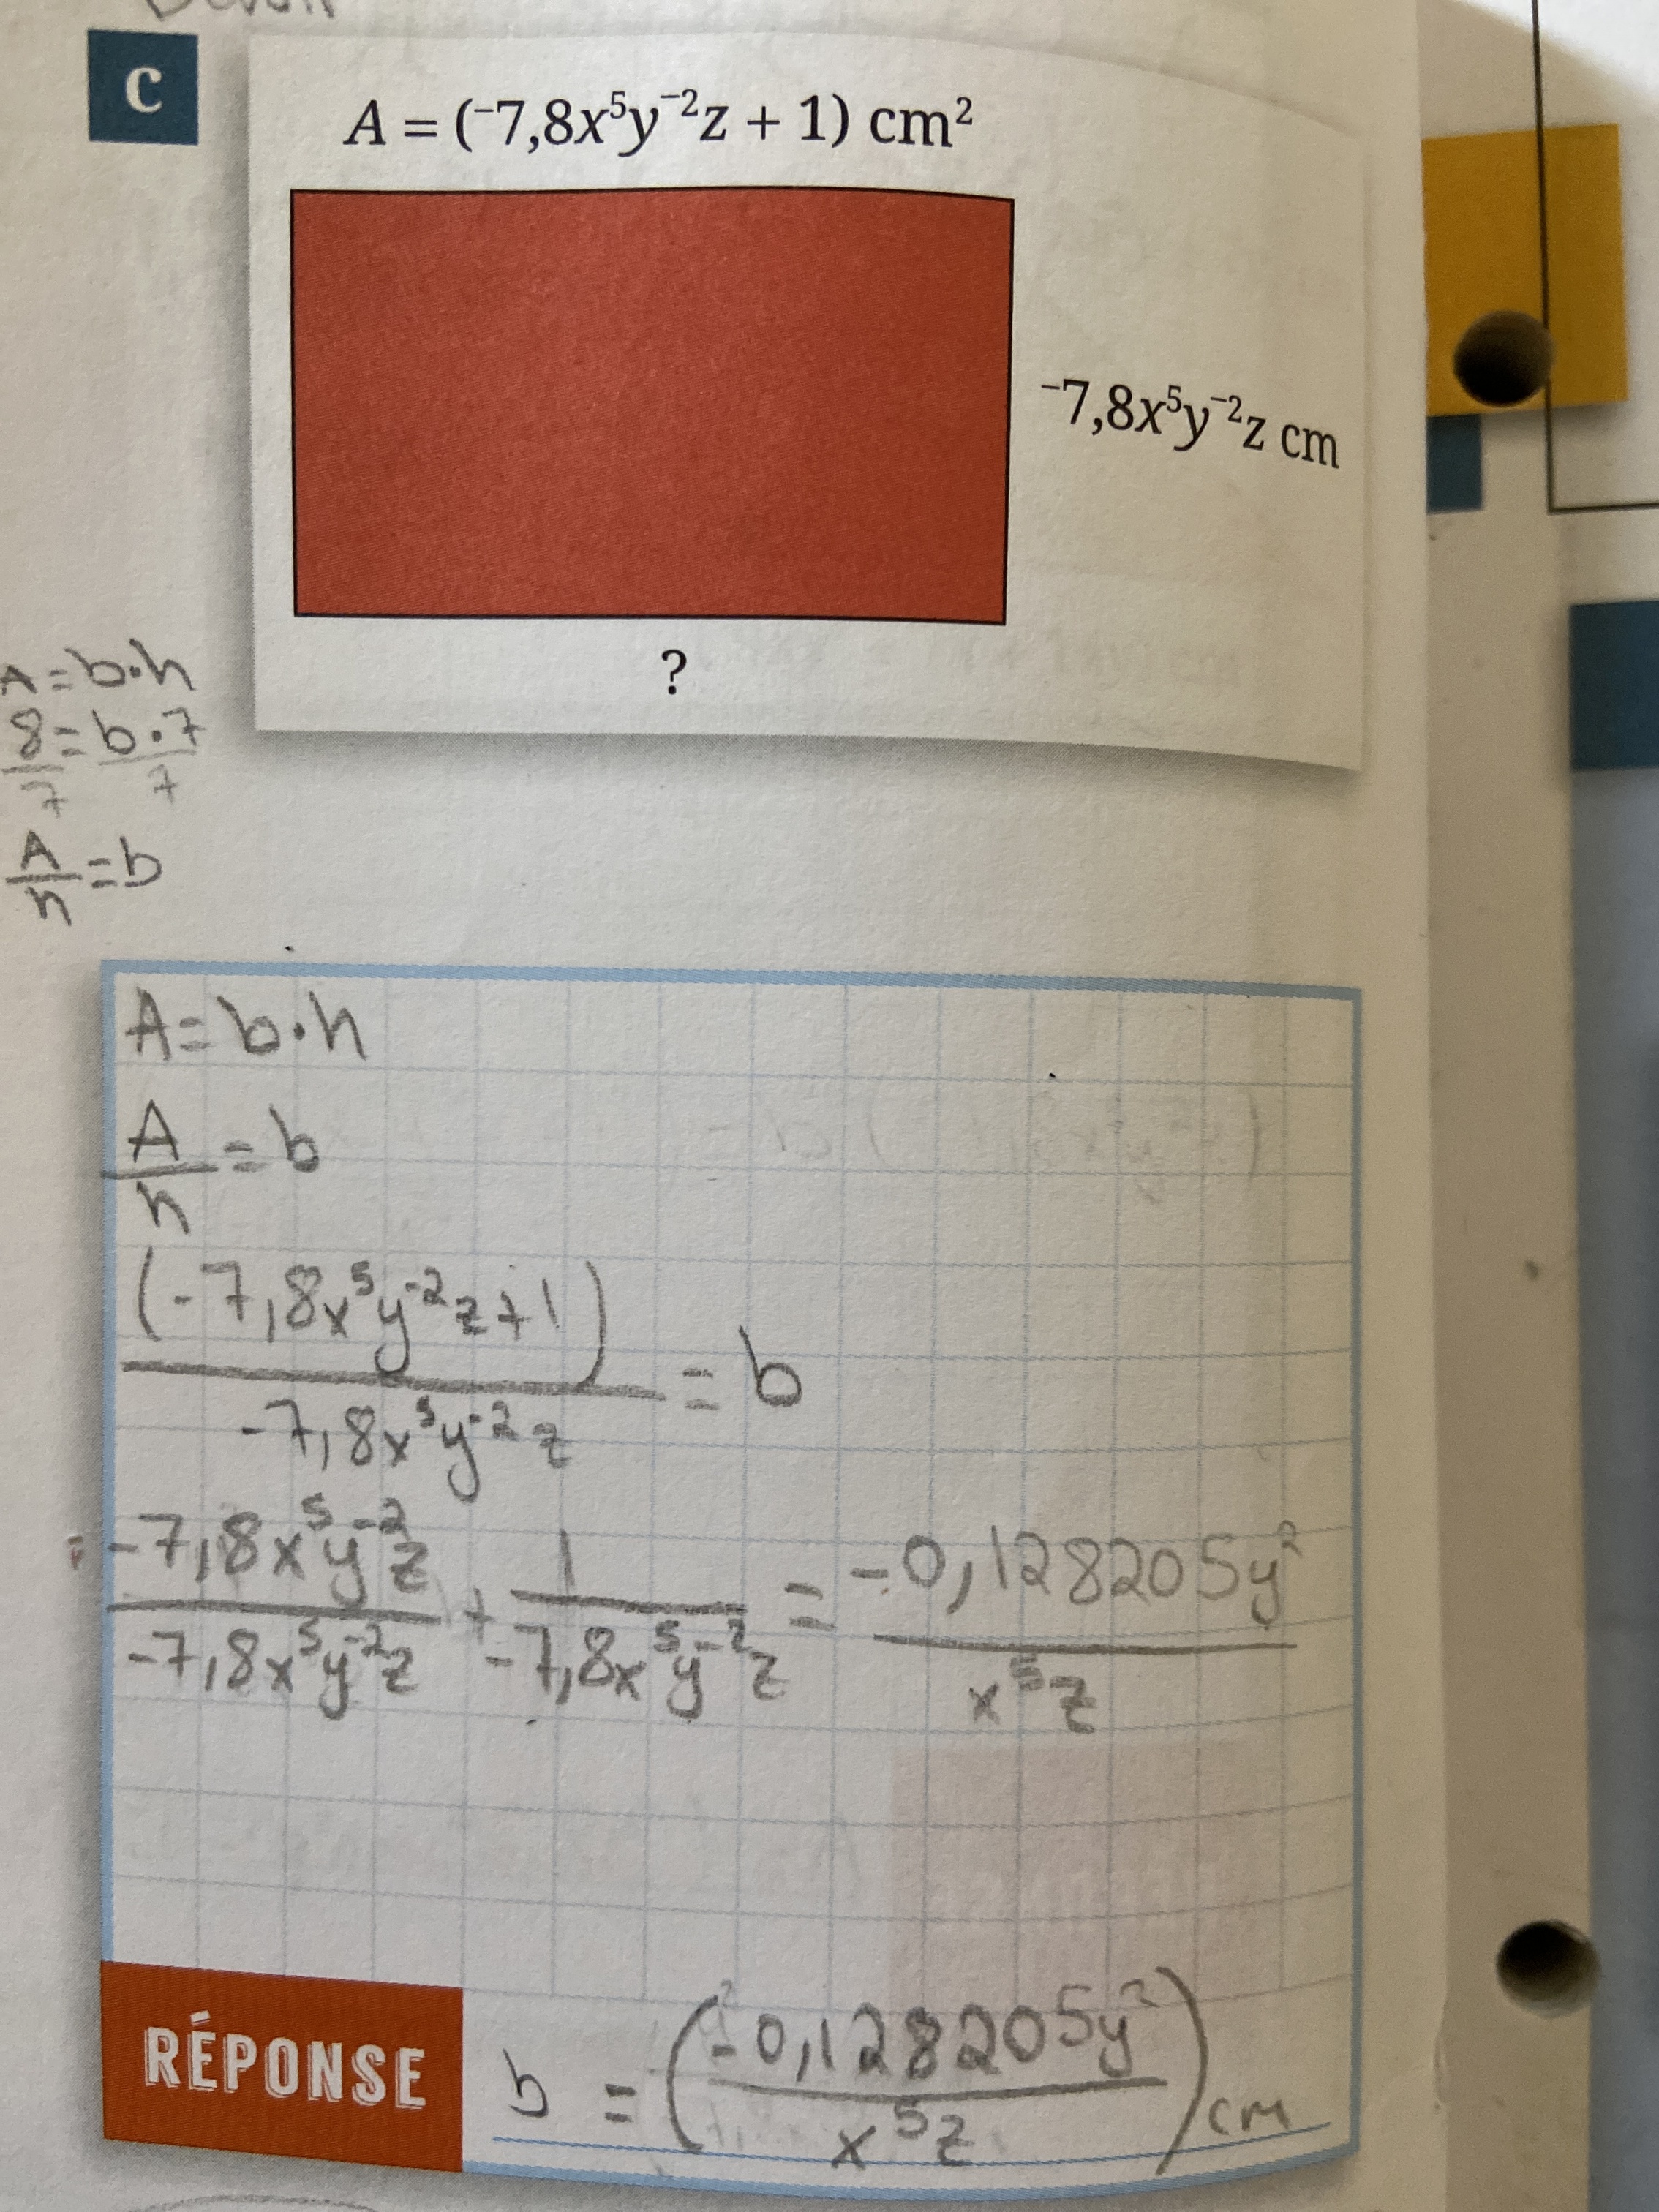 C
A = (⁻7,8x⁵y⁻²z + 1) cm²
⁻7,8x⁵y⁻²z cm
?
A = b·h
8/7 = b·7/7
A/h = b
A = b·h
A/h = b
(-7,8x⁵y⁻²z+1)/-7,8x⁵y⁻²z = b
= -7,8x⁵y⁻²z/-7,8x⁵y⁻²z + 1/-7,8x⁵y⁻²z = -0,128205y²/x⁵z
RÉPONSE
b = (-0,128205y²/x⁵z) cm